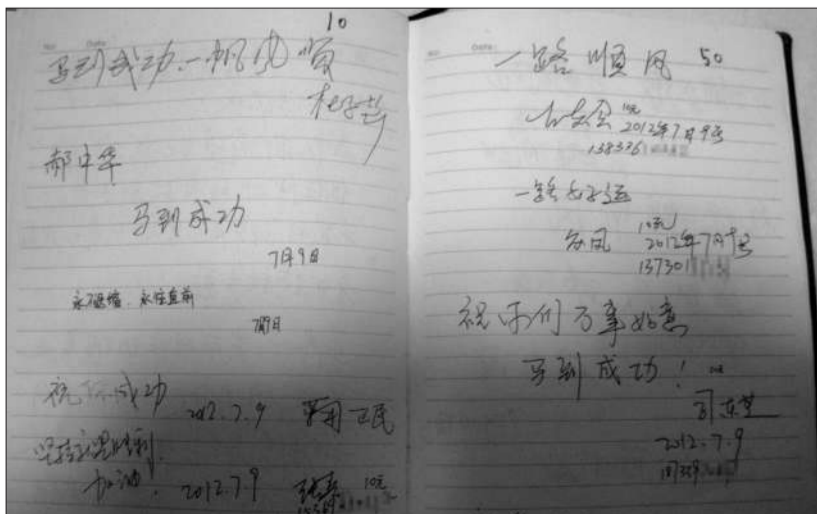 10
马到成功.一帆风顺
郝中华
马到成功
7月9日
永不退缩.永往直前
7月9日
祝你成功
2012.7.9
坚持就是胜利
加油. 2012.7.9 10元
一路顺风 50
10元
2012年7月9号
138336
一路好运
10元
2012年7月9号
137301
祝你们万事如意
马到成功!
2012.7.9